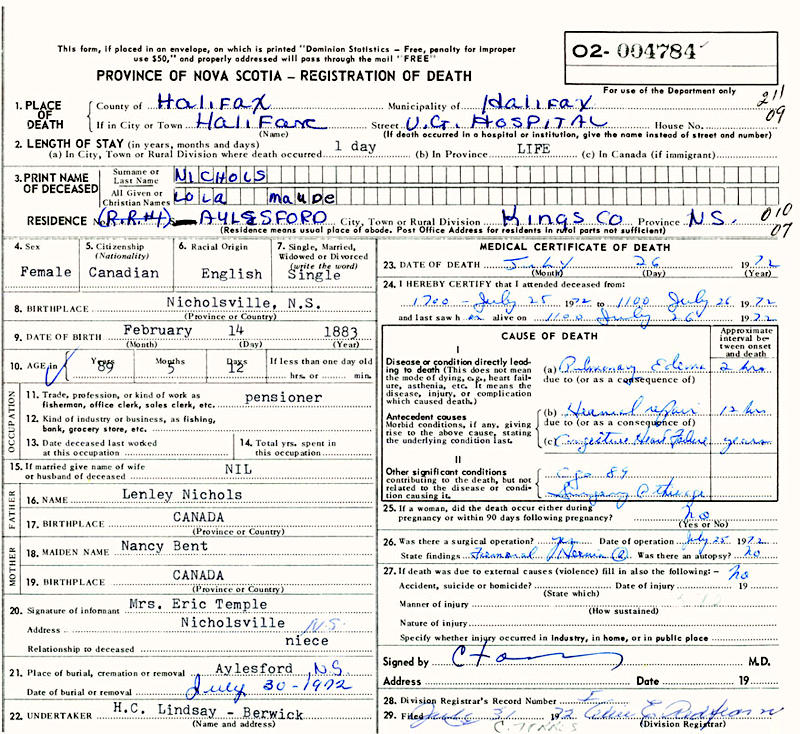 This form, if placed in an envelope, on which is printed "Dominion Statistics – Free, penalty for improper
use $50," and properly addressed will pass through the mail "FREE"
02- 004784
PROVINCE OF NOVA SCOTIA – REGISTRATION OF DEATH
For use of the Department only
211
09
1. PLACE OF DEATH
County of Halifax Municipality of Halifax
If in City or Town Halifax Street V.G. HOSPITAL House No.
(Name) (If death occurred in a hospital or institution, give the name instead of street and number)
2. LENGTH OF STAY (in years, months and days)
(a) In City, Town or Rural Division where death occurred 1 day (b) In Province LIFE (c) In Canada (if immigrant)
3. PRINT NAME OF DECEASED
Surname or Last Name NICHOLS
All Given or Christian Names Lola maude
RESIDENCE (R.R#4) AYLESFORD City, Town or Rural Division Kings Co Province NS. 010
07
(Residence means usual place of abode. Post Office Address for residents in rural parts not sufficient)
4. Sex
Female
5. Citizenship
(Nationality)
Canadian
6. Racial Origin
English
7. Single, Married,
Widowed or Divorced
(write the word)
Single
8. BIRTHPLACE Nicholsville, N.S.
(Province or Country)
9. DATE OF BIRTH February 14 1883
(Month) (Day) (Year)
10. AGE in Years 89 Months 5 Days 12 If less than one day old
hrs. or min.
OCCUPATION
11. Trade, profession, or kind of work as
fisherman, office clerk, sales clerk, etc. pensioner
12. Kind of industry or business, as fishing,
bank, grocery store, etc.
13. Date deceased last worked
at this occupation
14. Total yrs. spent in
this occupation
15. If married give name of wife
or husband of deceased NIL
FATHER
16. NAME Lenley Nichols
17. BIRTHPLACE CANADA
(Province or Country)
MOTHER
18. MAIDEN NAME Nancy Bent
19. BIRTHPLACE CANADA
(Province or Country)
20. Signature of informant Mrs. Eric Temple
Address Nicholsville N.S.
Relationship to deceased niece
21. Place of burial, cremation or removal Aylesford NS
Date of burial or removal July 30-1972
22. UNDERTAKER H.C. Lindsay - Berwick
(Name and address)
MEDICAL CERTIFICATE OF DEATH
23. DATE OF DEATH July 26 1972
(Month) (Day) (Year)
24. I HEREBY CERTIFY that I attended deceased from:
1700 - July 25 1972 to 1100 July 26 1972
and last saw h er alive on 1100 July 26 1972
CAUSE OF DEATH
Approximate
interval be-
tween onset
and death
I
Disease or condition directly lead-
ing to death (This does not mean
the mode of dying, e.g., heart fail-
ure, asthenia, etc. It means the
disease, injury, or complication
which caused death.)
(a) Pulmonary Edema 2 hrs
due to (or as a consequence of)
Antecedent causes
Morbid conditions, if any, giving
rise to the above cause, stating
the underlying condition last.
(b) Hernial repair 12 hrs
due to (or as a consequence of)
(c) Congestive Heart Failure years
II
Other significant conditions
contributing to the death, but not
related to the disease or condi-
tion causing it.
age 89
Surgery
25. If a woman, did the death occur either during
pregnancy or within 90 days following pregnancy? no
(Yes or No)
26. Was there a surgical operation? yes Date of operation July 25 1972
State findings Femoral Hernia (R) Was there an autopsy? no
27. If death was due to external causes (violence) fill in also the following: – no
Accident, suicide or homicide? Date of injury 19
(State which)
Manner of injury
(How sustained)
Nature of injury
Specify whether injury occurred in industry, in home, or in public place
Signed by M.D.
Address Date 19
28. Division Registrar's Record Number
29. Filed July 31 1972
(Division Registrar)